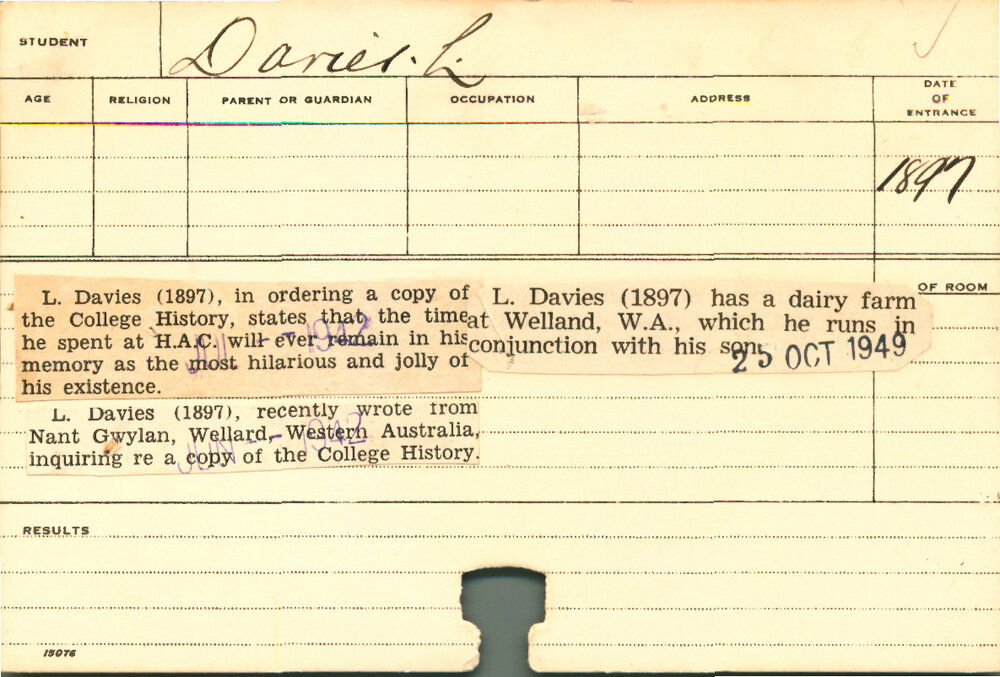 STUDENT
Davies. L.
AGE
RELIGION
PARENT OR GUARDIAN
OCCUPATION
ADDRESS
DATE
OF
ENTRANCE
1897
L. Davies (1897), in ordering a copy of
the College History, states that the time
he spent at H.A.C. will ever remain in his
memory as the most hilarious and jolly of
his existence.
JUL - - 1942
L. Davies (1897), recently wrote from
Nant Gwylan, Wellard, Western Australia,
inquiring re a copy of the College History.
JUN - - 1942
L. Davies (1897) has a dairy farm
at Welland, W.A., which he runs in
conjunction with his son.
25 OCT 1949
OF ROOM
RESULTS
15076